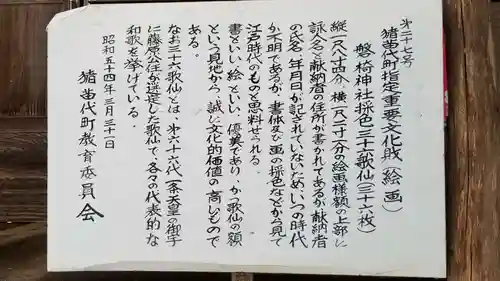 第二十七号
猪苗代町指定重要文化財（絵画）
磐椅神社採色三十六歌仙（三十六枚）
縦一尺八寸四分　横一尺二寸二分の絵画様額の上部に
詠人名と献納者の住所が書かれてあるが献納者
の氏名　年月日が記されていないためいつの時代
か不明であるが、書体及び画の採色などから見て
江戸時代のものと思料せられる。
書といい絵といい、優美であり、かつ歌仙の額
という見地から、誠に文化的価値の高いもので
ある。
なお三十六歌仙とは、第六十六代一条天皇の御宇
に藤原公任が選定した歌仙で、各々の代表的な
和歌を挙げている。
昭和五十四年三月三十一日
猪苗代町教育委員会